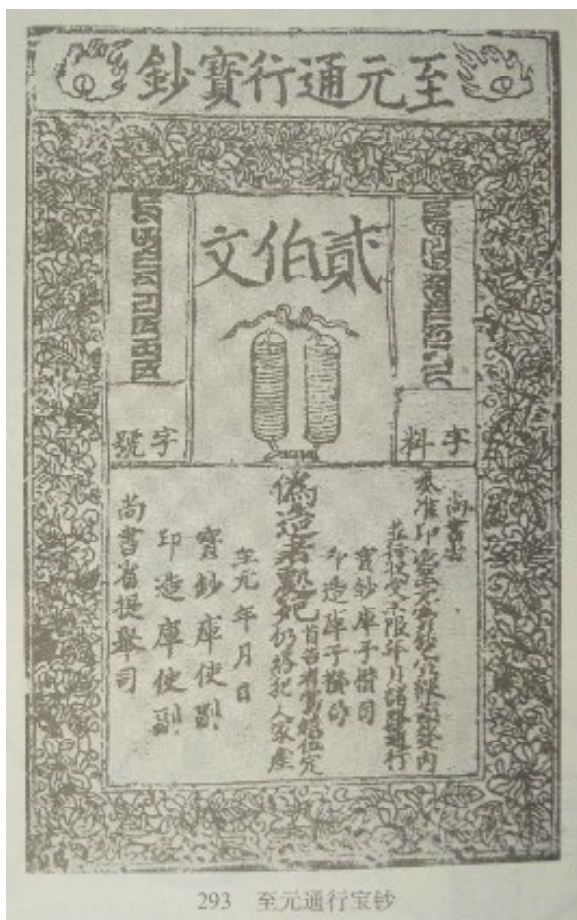 至元通行寳鈔
貳伯文
字料
字號
尚書省
奏准印造至元寳鈔宣課差役內
並行收受不限年月諸路通行
寳鈔庫子攢司
印造庫子攢司
偽造者處死首告者賞銀伍定
仍給犯人家產
至元年月日
寳鈔庫使副
印造庫使副
尚書省提舉司
293 至元通行宝钞